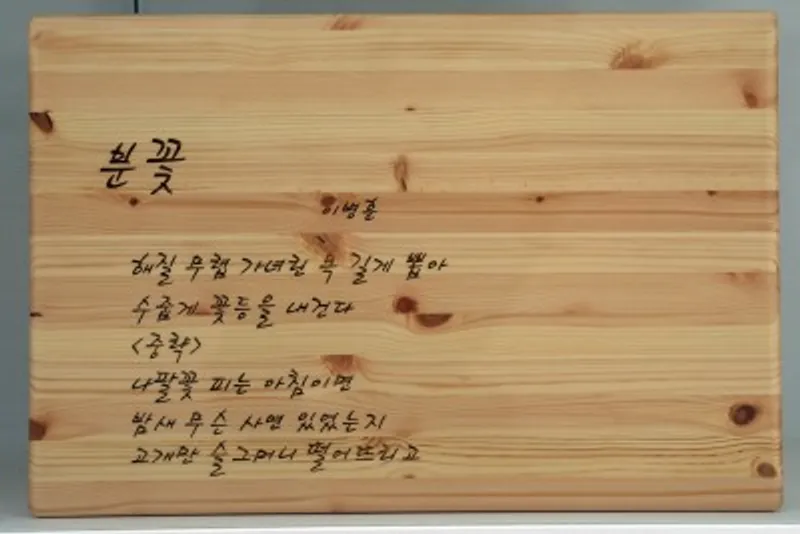 분꽃
이병훈
해질 무렵 가녀린 목 길게 뽑아
수줍게 꽃등을 내건다
<중략>
나팔꽃 피는 아침이면
밤새 무슨 사연 있었는지
고개만 슬그머니 떨어뜨리고